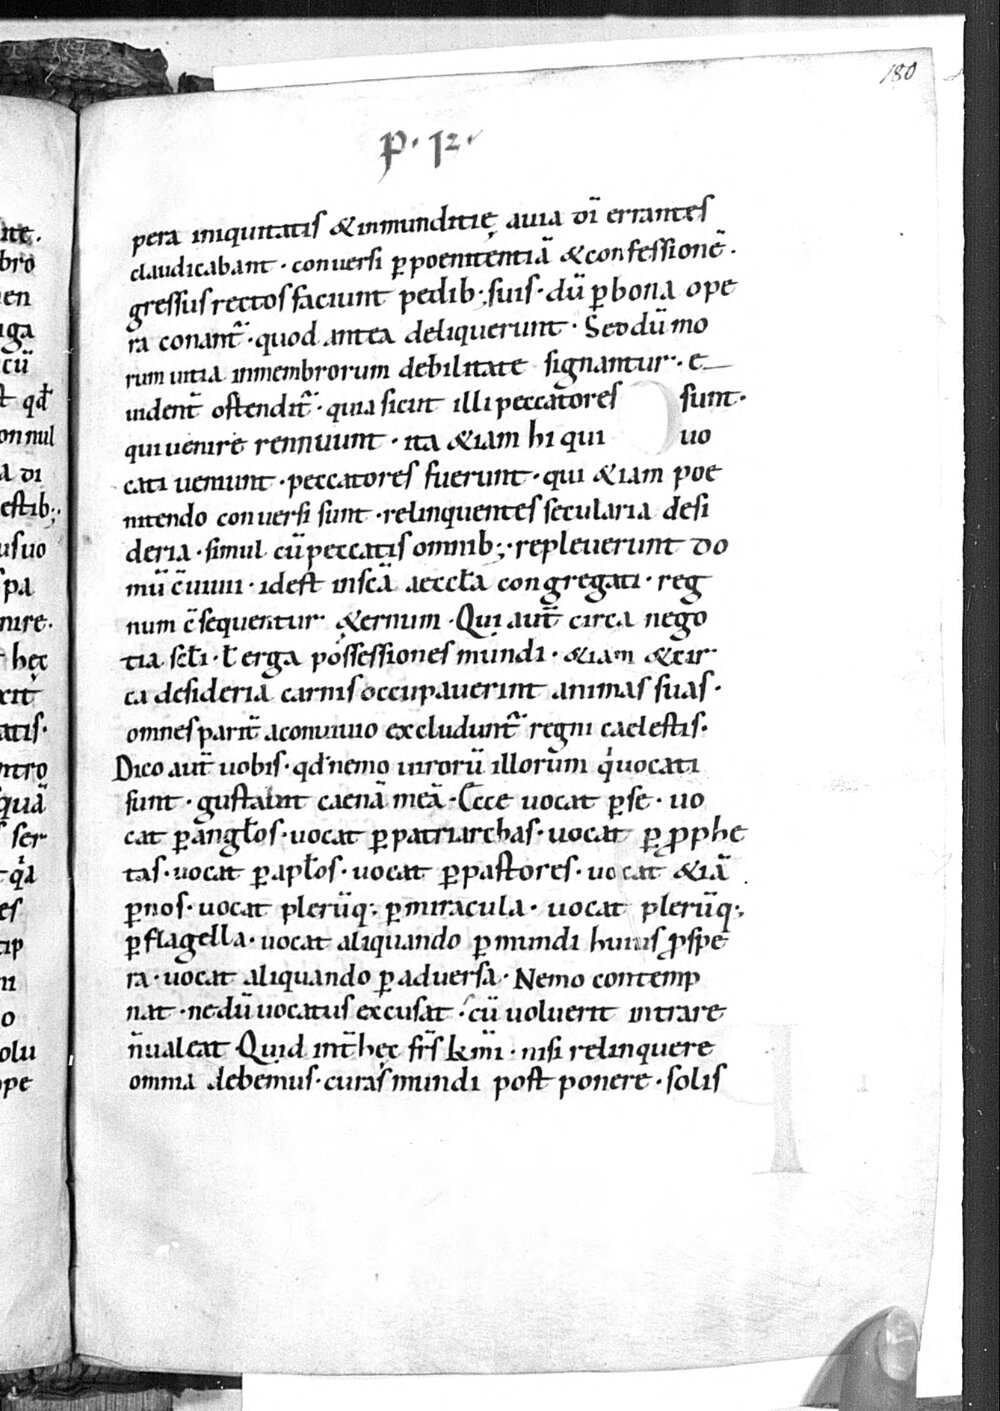 180
p. 12.
pera iniquitatis & inmunditię avia dī errantes
claudicabant · conversi p̲ poenitentiā & confessionē ·
gressus rectos faciunt pedib; suis · dū p̲ bona ope
ra conant̃ · quod antea deliquerunt · Sed dū mo
rum vitia in membrorum debilitate signantur · e
vident̃ ostendit̃ · quia sicut illi peccatores sunt ·
qui venire rennuunt · ita &iam hi qui vo
cati veniunt · peccatores fuerunt · qui &iam poe
nitendo conversi sunt · relinquentes secularia desi
deria · simul cū peccatis omnib; · repleverunt do
mū c̄vivii · id est in scā aeccłā congregati · reg
num c̄sequentur &ernum · Qui aut̃ circa nego
tia scłi · ł erga possessiones mundi · &iam & cir
ca desideria carnis occupaverint animas suas ·
omnes parit̃ a convivio excludunt̃ regni caelestis ·
Dico aut̃ vobis · qđ nemo virorū illorum qͥ vocati
sunt · gustabint caenā meā · Ecce vocat p̲ se · vo
cat p̲ angłos · vocat p̲ patriarchas · vocat p̲ p̲phe
tas · vocat p̲ apłos · vocat p̲ pastores · vocat &iā
p̲ nos · vocat plerūq; p̲ miracula · vocat plerūq;
p̲ flagella · vocat aliquando p̲ mundi huius p̲spe
ra · vocat aliquando p̲ adversa · Nemo contemp
nat · ne dū vocatus excusat · cū voluerit intrare
n̄ valeat Quid int̃ hęc fr̄s k̄mi · nisi relinquere
omnia debemus · curas mundi post ponere · solis